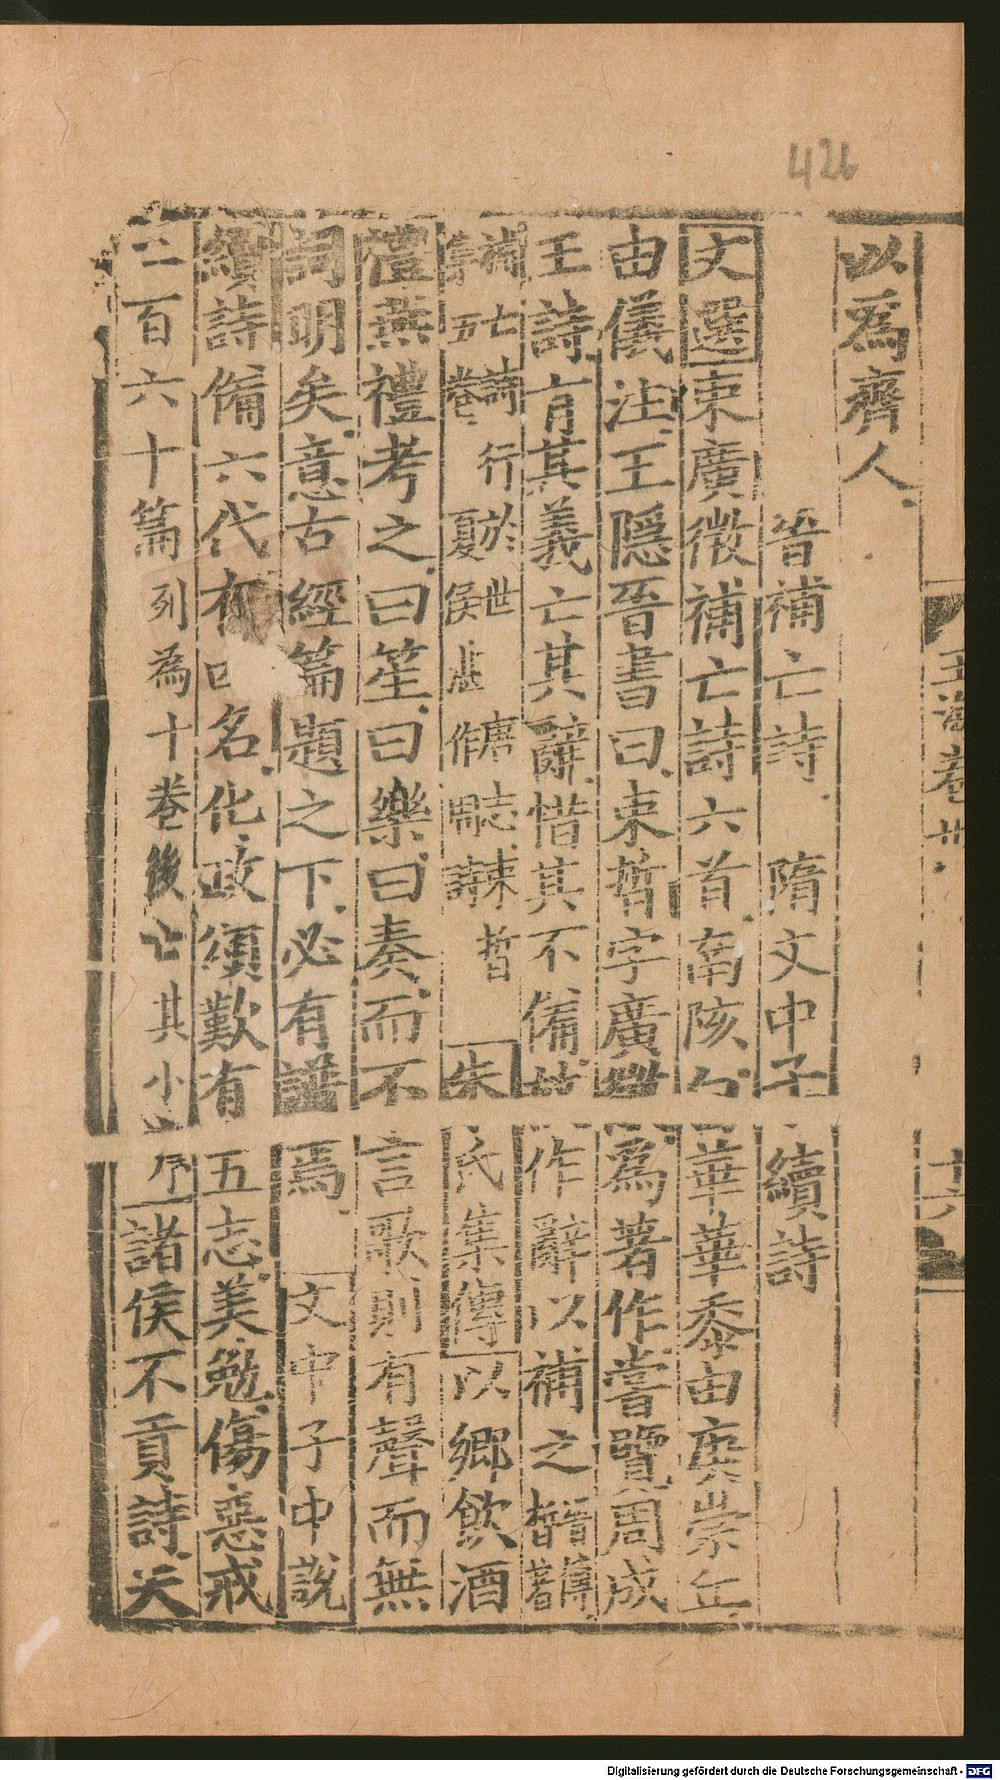 426
玉海卷卅
十六
以爲齊人
晉補亡詩 隋文中子續詩
文選束廣微補亡詩六首南陔白華華黍由庚崇丘
由儀注王隱晉書曰束晳字廣微爲著作嘗覽周成
王詩有其義亡其辭惜其不備故作辭以補之晳舊傳著
補亡詩行於世唐志束晳
集五卷夏侯湛作周詩
朱氏集傳以鄉飲酒
禮燕禮考之曰笙曰樂曰奏而不言歌則有聲而無
詞明矣意古經篇題之下必有譜焉 文中子中說
續詩備六代有四名化政頌歎有五志美勉傷惡戒
三百六十篇列為十卷後亡其小序諸侯不貢詩天
Digitalisierung gefördert durch die Deutsche Forschungsgemeinschaft - DFG